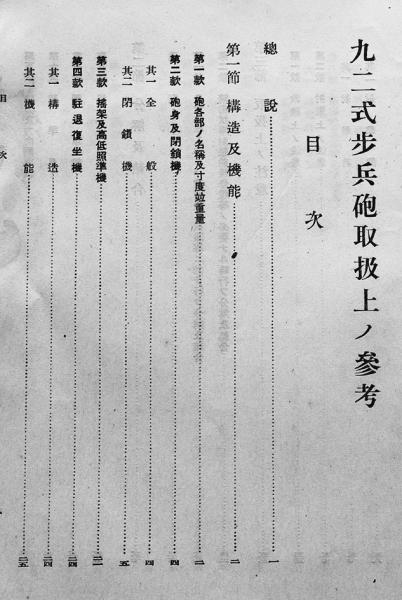 九二式步兵砲取扱上ノ參考
目次
總說 一
第一節 構造及機能 二
第一款 砲各部ノ名稱及寸度竝重量 二
第二款 砲身及閉鎖機 四
其一 全般 四
其二 閉鎖機 五
第三款 搖架及高低照準機
第四款 駐退復坐機 二四
其一 構造 二四
其二 機能 二五
目次